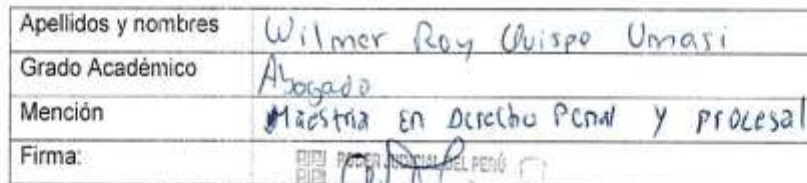 Apellidos y nombres Wilmer Roy Quispe Umasi
Grado Académico Abogado
Mención Maestria En Derecho Penal y procesal
Firma: PODER JUDICIAL DEL PERÚ